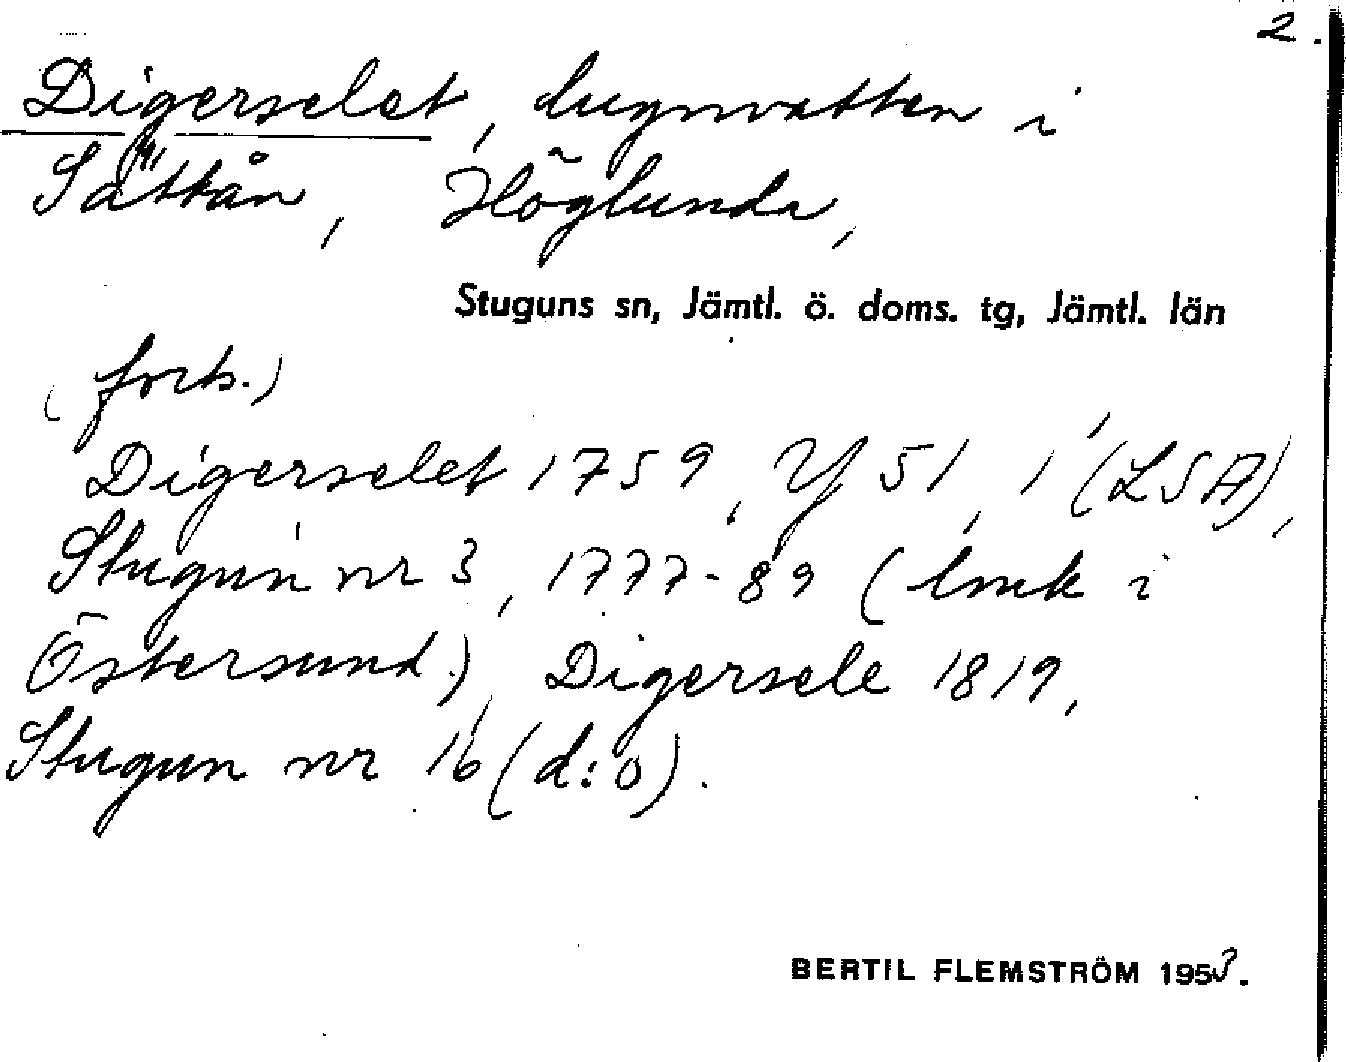 2.
Digerselet, lugnvatten i
Sättån, Höglunda,
Stuguns sn, Jämtl. ö. doms. tg, Jämtl. län
(forts.)
Digerselet 1759, Y 51, 1 (LSA),
Stugun nr 3, 1777-89 (lmk i
Östersund), Digersele 1819,
Stugun nr 16 (d:o).
BERTIL FLEMSTRÖM 1953.